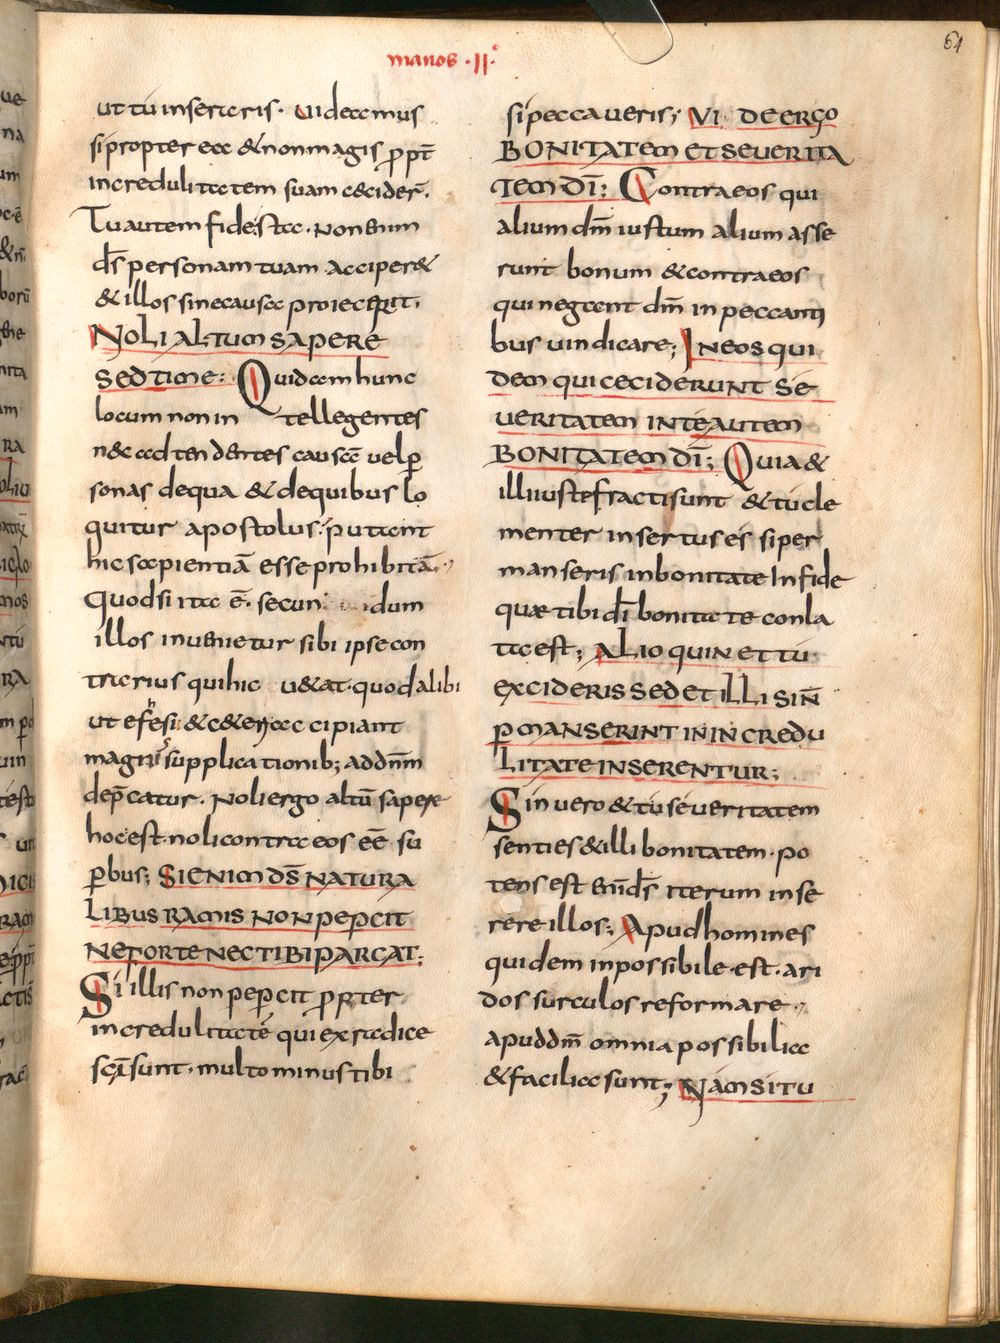 manos · II·
64
ut tu insereris · videamus
si propter ea & non magis ꝓpt̄
incredulitatem suam ceciderī.
Tu autem fide stas · Non enim
d̄s personam tuam acciper&
& illos sine causa proiecerit.
NOLI ALTUM SAPERE
SED TIME: Quidam hunc
locum non in tellegentes
nec adtendentes causā vel ꝑ
sonas de qua & de quibus lo
quitur apostolus: putant
hic sapientiā esse prohibitā.
Quodsi ita ē. secun dum
illos invenietur sibi ipse con
trarius qui hic v&at · quod alibi
ut efhesi &c&eri accipiant
magnis supplicationib; ad dn̄m
dep̄catur. Noli ergo altū sapere
hoc est · noli contra eos eē su
ꝑbus; SI ENIM DS̄ NATURA
LIBUS RAMIS NON PEꝐCIT
NE FORTE NEC TIBI PARCAT;
Si illis non peꝑcit propter
incredulitatē qui ex radice
sc̄i sunt · multo minus tibi
si peccaveris; VIDE ERGO
BONITATEM ET SEVERITA
TEM DĪ; Contra eos qui
alium dm̄ iustum alium asse
runt bonum & contra eos
qui negant dm̄ in peccanti
bus vindicare; IN EOS QUI
DEM QUI CECIDERUNT SE
VERITATEM IN TE AUTEM
BONITATEM DĪ; Quia &
illi iuste fracti sunt & tu cle
menter insertus es si per
manseris in bonitate In fide
quæ tibi dī bonitate conla
ta est; ALIOQUIN ET TU
EXCIDERIS SED ET ILLI SI N̄
ꝐMANSERINT IN INCREDU
LITATE INSERENTUR;
Sin vero & tu severitatem
senties & illi bonitatem · po
tens est enī d̄s iterum inse
rere illos; Apud homines
quidem inpossibile · est · ari
dos surculos reformare ·
apud dm̄ omnia possibilia
& facilia sunt; NAM SI TU